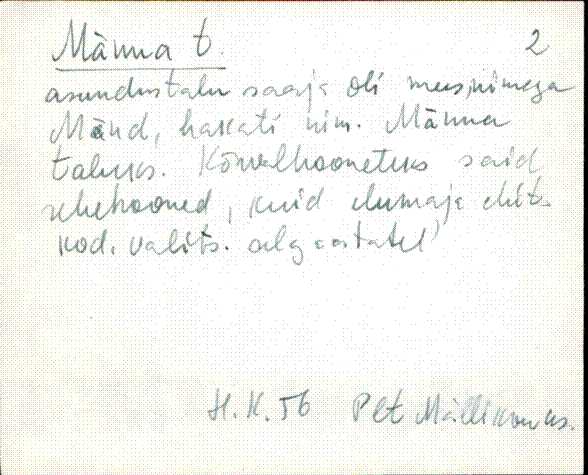 Männa t. 2
asundustalu saaja oli mees, nimega
Mänd, hakati nim. Männa
taluks. Kõrvalhooneteks said
rehehooned, kuid elumaja ehit.
kod. valits. alg aastatel
H.K. 56 Plt Mällikvere as.